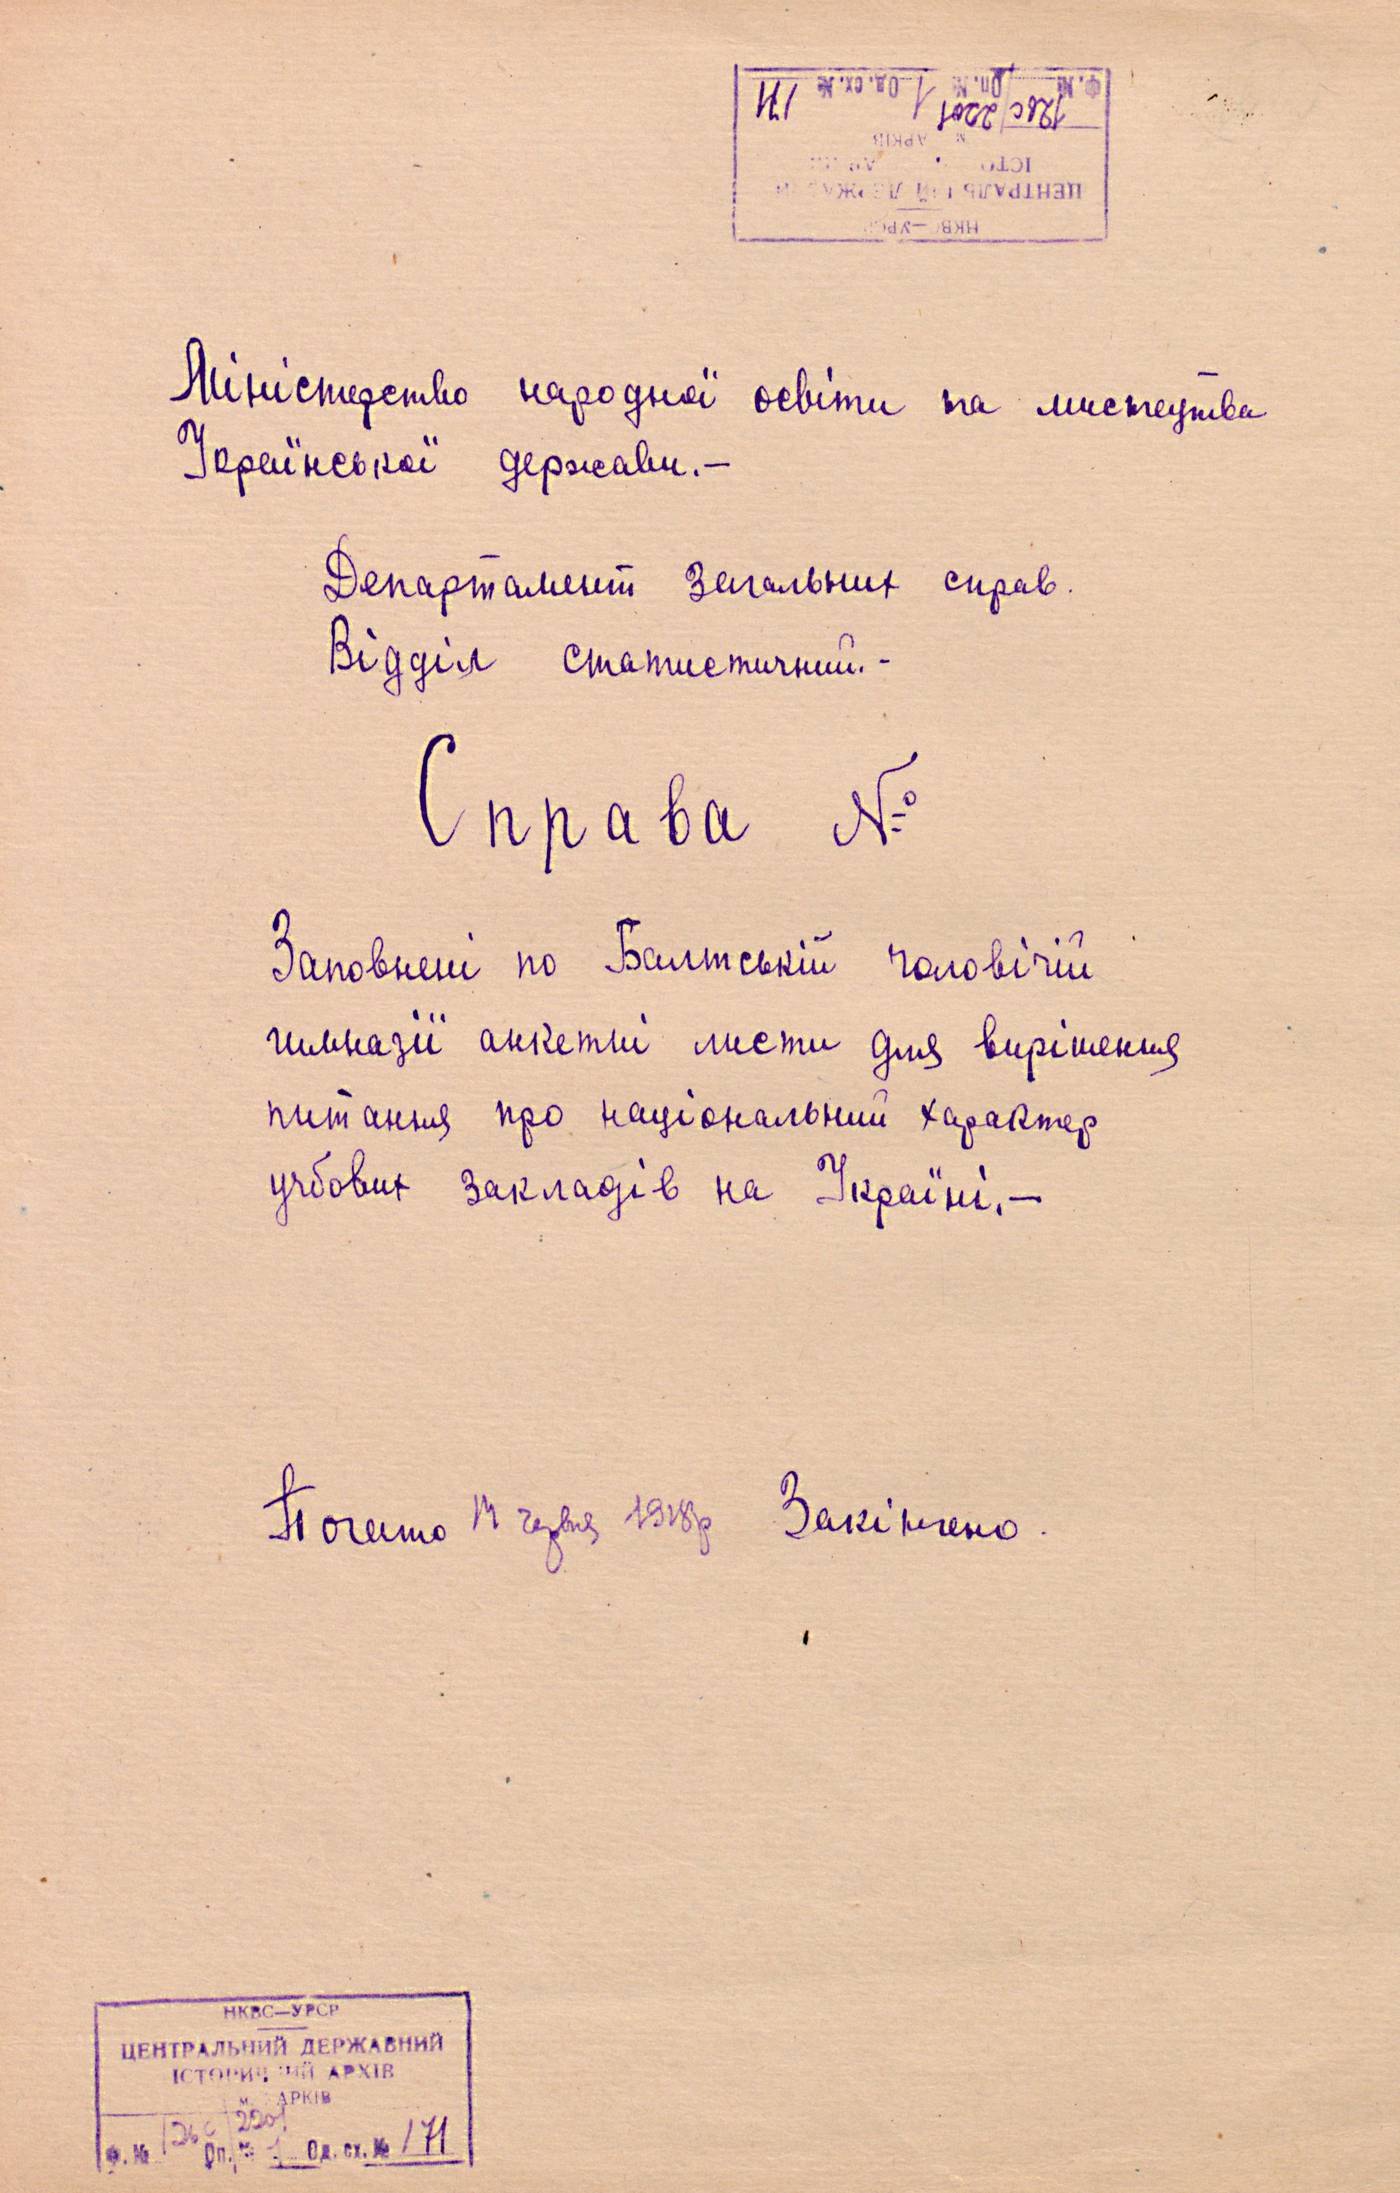 Ф. № 126с/2201 Оп. № 1 Од. сх. № 171
АРКІВ
НКВС—УРСР
Міністерство народної освіти та мистецтва
Української держави.—
Департамент загальних справ.
Відділ статистичний.-
Справа №
Заповнені по Балтській чоловічій
гимназії анкетні листи для вирішення
питання про національний характер
учбових закладів на Україні.—
Почато червня 1918р Закінчено.
НКВС—УРСР
ЦЕНТРАЛЬНИЙ ДЕРЖАВНИЙ
ІСТОРИЧНИЙ АРХІВ
м. АРКІВ
Ф. № 126с/2201 Оп. № 1 Од. сх. № 171